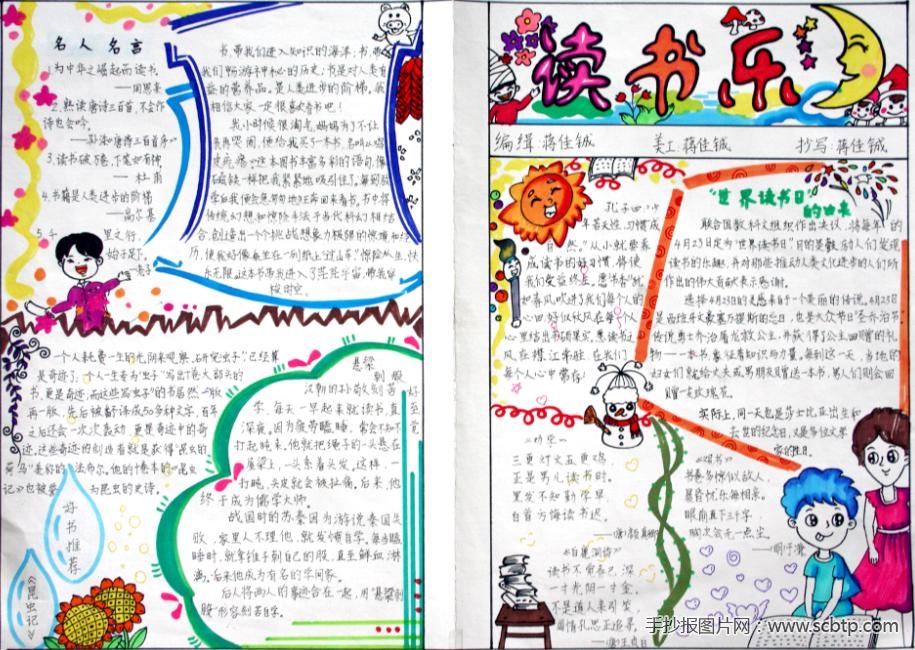 名人名言
1.为中华之崛起而读书。
——周恩来
2.熟读唐诗三百首,不会作
诗也会吟。
——孙洙《唐诗三百首序》
3.读书破万卷,下笔如有神
——杜甫
4.书籍是人类进步的阶梯
——高尔基
书,带我们进入知识的海洋;书,带
我们畅游
的历史;书是对人类有
益的营养品,是人类进步的阶梯,我
相信大家一定很喜欢看书吧!
我小时候很淘气,妈妈为了不让
我哭闹,便给我买了一本书
这本图书丰富多彩的语句,像
磁铁一样把我紧紧地吸引住了。
书中将
传统幻想和惊险手法与当代科幻相结
合,创造出一个个挑战想象力极限的惊境和经
历,使我好像奔坐在一列纸上“过山车”惊险从生,快
乐无限。这本书带我进入了茫茫宇宙,带我穿
梭时空。
一个人耗费一生的光阴来观察、研究“虫子”已经算
是奇迹了;一个人一生专为“虫子”写出十卷大部头的
书,更是奇迹;而这些写虫子的书居然一版
再版,先后被翻译成50多种文字,百年
之后还会一次次轰动,更是奇迹中的奇
迹,这些奇迹的创造者就是获得“昆虫的
荷马”美称的法布尔。他的十卷本的《昆虫
记》也被誉为昆虫的史诗。
好书推荐
《昆虫记》
悬梁刺股
汉朝的孙敬刻苦好
学,每天一早起来就读书,直至
深夜。因为疲劳瞌睡,常会不知不觉
打起盹来。他就把绳子的一头悬在
屋梁上,一头系着头发。这样,一
打盹,头皮就会被扯痛。后来,他
终于成为儒学大师。
战国时的苏秦因为游说秦国失
败,家里人不理他,就发愤自学。每当瞌
睡时,就拿锥子刺自己的股,直至鲜血淋
漓,后来他成为有名的学问家。
后人将两人的事迹合在一起,用“悬梁刺
股”形容刻苦自学。
读书乐
编辑:蒋佳铖 美工:蒋佳铖 抄写:蒋佳铖
孔子曰:“少
年若天性,习惯成
自然。”从小就要养
成读书的好习惯,将使
我们受益终生。愿书香
把春风吹进了我们每个人的
心田
在我们
每个人心中常存!
“世界读书日”
的由来
联合国教科文组织作出决议,将每年的
4月23日定为“世界读书日”目的是鼓励人们发现
读书的乐趣,并对那些推动人类文化进步的人们所
作出的伟大贡献表示感谢。
选择4月23日的灵感来自于一个美丽的传说。4月23日
是西班牙文豪塞万提斯的忌日,也是大众节日“圣乔治节”
传说勇士乔治屠龙救公主,并获得了公主回赠的礼
物——一本书,象征着知识与力量。每到这一天,当地的
妇女们就给丈夫或男朋友赠送一本书,男人们则会回
赠一支玫瑰花
实际上,同一天也是莎士比亚出生和
去世的纪念日,又是多位文学
家的生日。
《劝学》
三更灯火五更鸡,
正是男儿读书时。
黑发不知勤学早,
白首方悔读书迟。
——唐·颜真卿
《观书》
书卷多情似故人,
晨昏忧乐每相亲。
眼前直下三千字,
胸次全无一点尘。
——明·于谦
《白鹿洞诗》
读书不觉春已深
一寸光阴一寸金。
不是道人来引笑,
周情孔思正追寻。
——唐·王贞白
手抄报图片网:www.scbtp.com